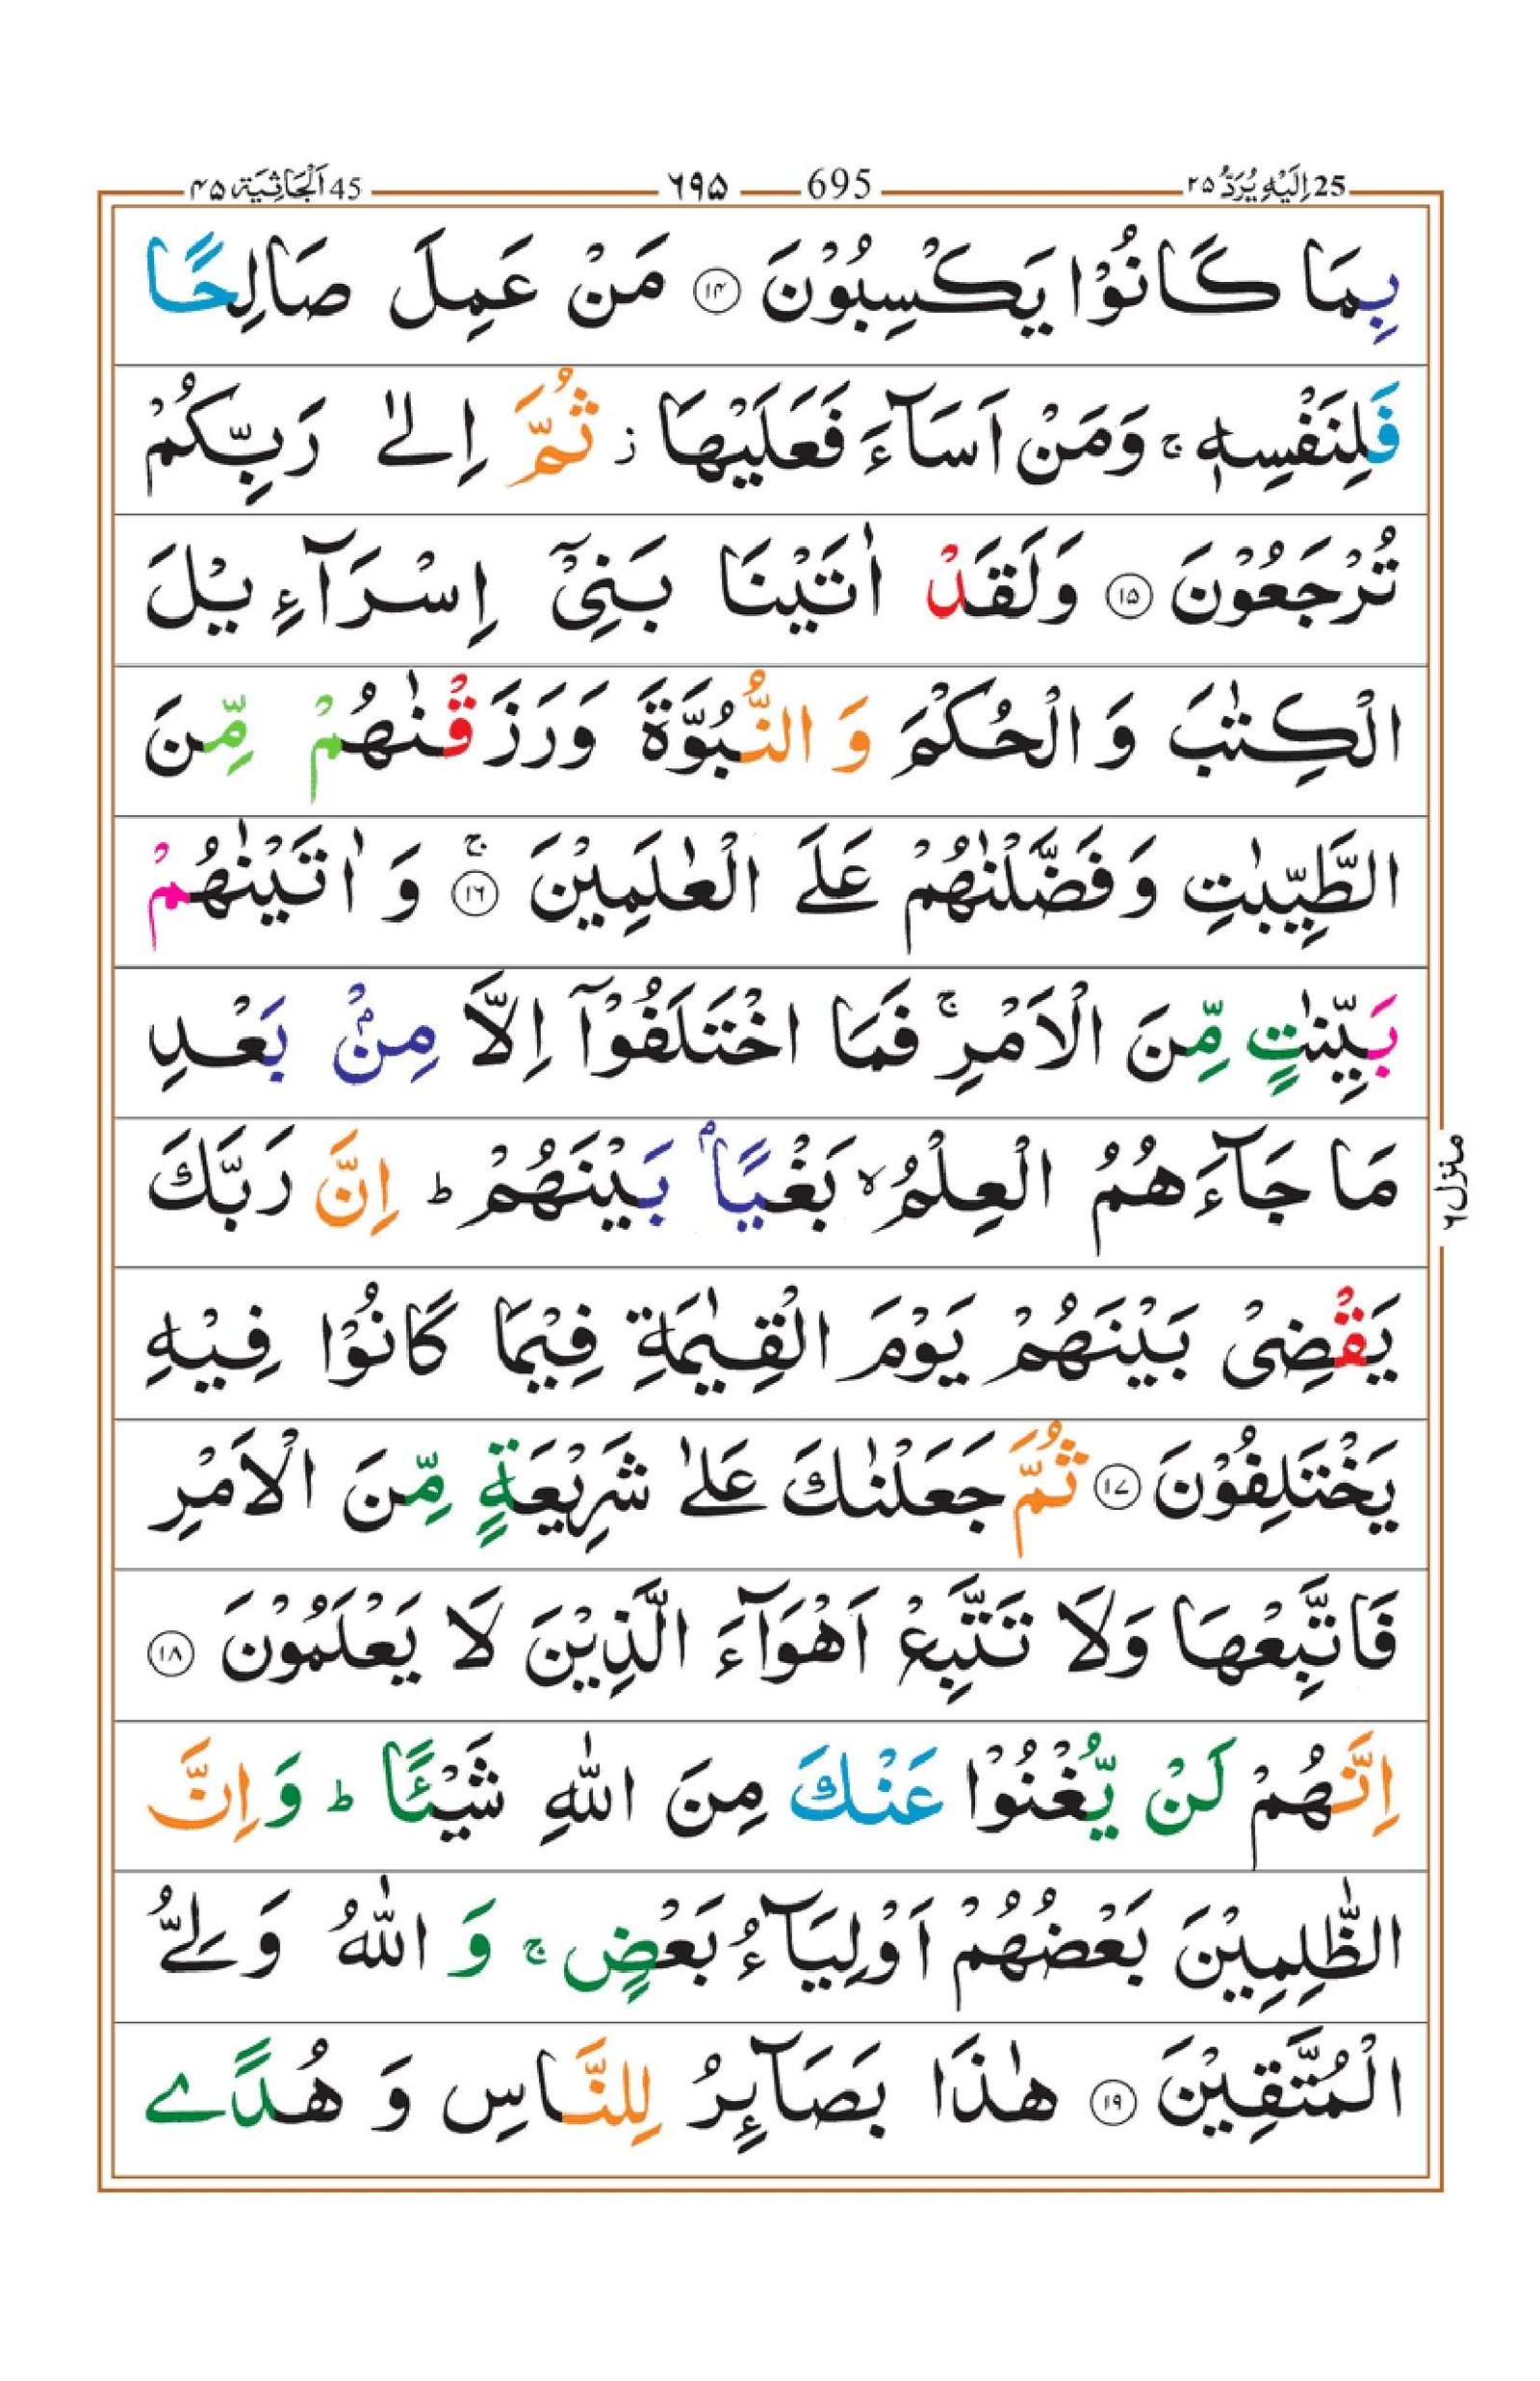 25 اِلَیْهِ یُرَدُّ ۲۵ 695 ۶۹۵ 45 اَلْجَاثِیَة ۴۵
بِمَا كَانُوْا یَكْسِبُوْنَ ۝۱۴ مَنْ عَمِلَ صَالِحًا
فَلِنَفْسِهٖ ۚ وَمَنْ اَسَآءَ فَعَلَیْهَا ؗ ثُمَّ اِلٰى رَبِّكُمْ
تُرْجَعُوْنَ ۝۱۵ وَلَقَدْ اٰتَیْنَا بَنِیْۤ اِسْرَآءِیْلَ
الْكِتٰبَ وَ الْحُكْمَ وَ النُّبُوَّةَ وَرَزَقْنٰهُمْ مِّنَ
الطَّیِّبٰتِ وَفَضَّلْنٰهُمْ عَلَى الْعٰلَمِیْنَ ۚ۝۱۶ وَ اٰتَیْنٰهُمْ
بَیِّنٰتٍ مِّنَ الْاَمْرِ ۚ فَمَا اخْتَلَفُوْۤا اِلَّا مِنْۢ بَعْدِ
مَا جَآءَهُمُ الْعِلْمُ ۙ بَغْیًۢا بَیْنَهُمْ ؕ اِنَّ رَبَّكَ
یَقْضِیْ بَیْنَهُمْ یَوْمَ الْقِیٰمَةِ فِیْمَا كَانُوْا فِیْهِ
یَخْتَلِفُوْنَ ۝۱۷ ثُمَّ جَعَلْنٰكَ عَلٰى شَرِیْعَةٍ مِّنَ الْاَمْرِ
فَاتَّبِعْهَا وَلَا تَتَّبِعْ اَهْوَآءَ الَّذِیْنَ لَا یَعْلَمُوْنَ ۝۱۸
اِنَّهُمْ لَنْ یُّغْنُوْا عَنْكَ مِنَ اللّٰهِ شَیْـًٔا ؕ وَ اِنَّ
الظّٰلِمِیْنَ بَعْضُهُمْ اَوْلِیَآءُ بَعْضٍ ۚ وَ اللّٰهُ وَلِیُّ
الْمُتَّقِیْنَ ۝۱۹ هٰذَا بَصَآىِٕرُ لِلنَّاسِ وَ هُدًی
منزل ۶